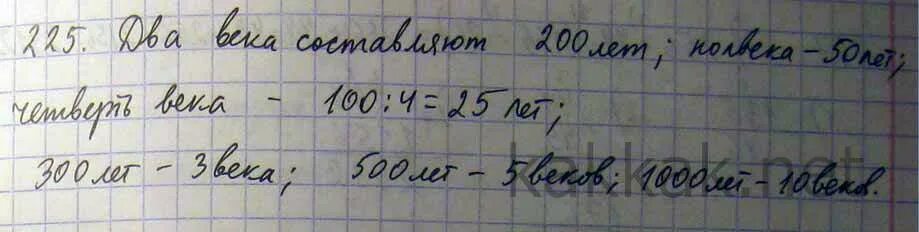 225. Два века составляют 200 лет; полвека - 50 лет;
четверть века - 100:4=25 лет;
300 лет - 3 века; 500 лет - 5 веков; 1000 лет - 10 веков.
kakkak.net